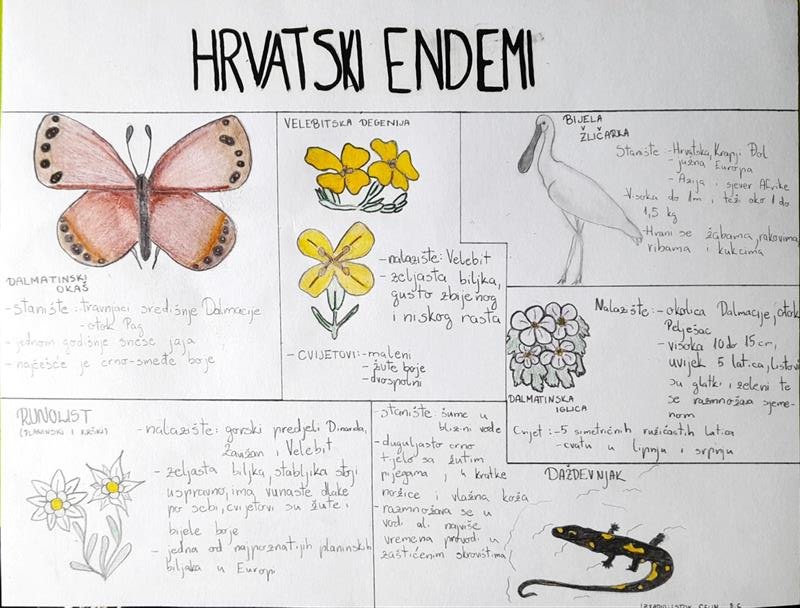 HRVATSKI ENDEMI
DALMATINSKI
OKAŠ
-stanište:-travnjaci središnje Dalmacije
-otok Pag
-jednom godišnje snese jaja
-najčešće je crno-smeđe boje
VELEBITSKA DEGENIJA
-nalazište: Velebit
-zeljasta biljka,
gusto zbijenog
i niskog rasta
-CVIJETOVI:-maleni
-žute boje
-dvospolni
BIJELA
ŽLIČARKA
Stanište -Hrvatska, Krapji Dol
-južna Europa
-Azija i sjever Afrike
-Visoka do 1m i teži oko 1 do
1,5 kg
-Hrani se žabama, rakovima,
ribama i kukcima
DALMATINSKA
IGLICA
Nalazište:-okolica Dalmacije, otok
Pelješac
-visoka 10 do 15cm,
uvijek 5 latica, listovi
su glatki i zeleni te
se razmnožava sjeme-
nom
Cvijet:-5 simetričnih ružičastih latica
-cvatu u lipnju i srpnju
RUNOLIST
(PLANINSKI I KRŠKI)
-nalazište: gorski predjeli Dinarida,
i Velebit
-zeljasta biljka, stabljika stoji
uspravno, ima vunaste dlake
po sebi, cvijetovi su žute i
bijele boje
-jedna od najpoznatijih planinskih
biljaka u Europi
-stanište: šume u
blizini vode
-duguljasto crno
tijelo sa žutim
pjegama, 4 kratke
nožice i vlažna koža
-razmnožava se u
vodi, ali najviše
vremena provodi u
zaštićenim skrovištima
DAŽDEVNJAK